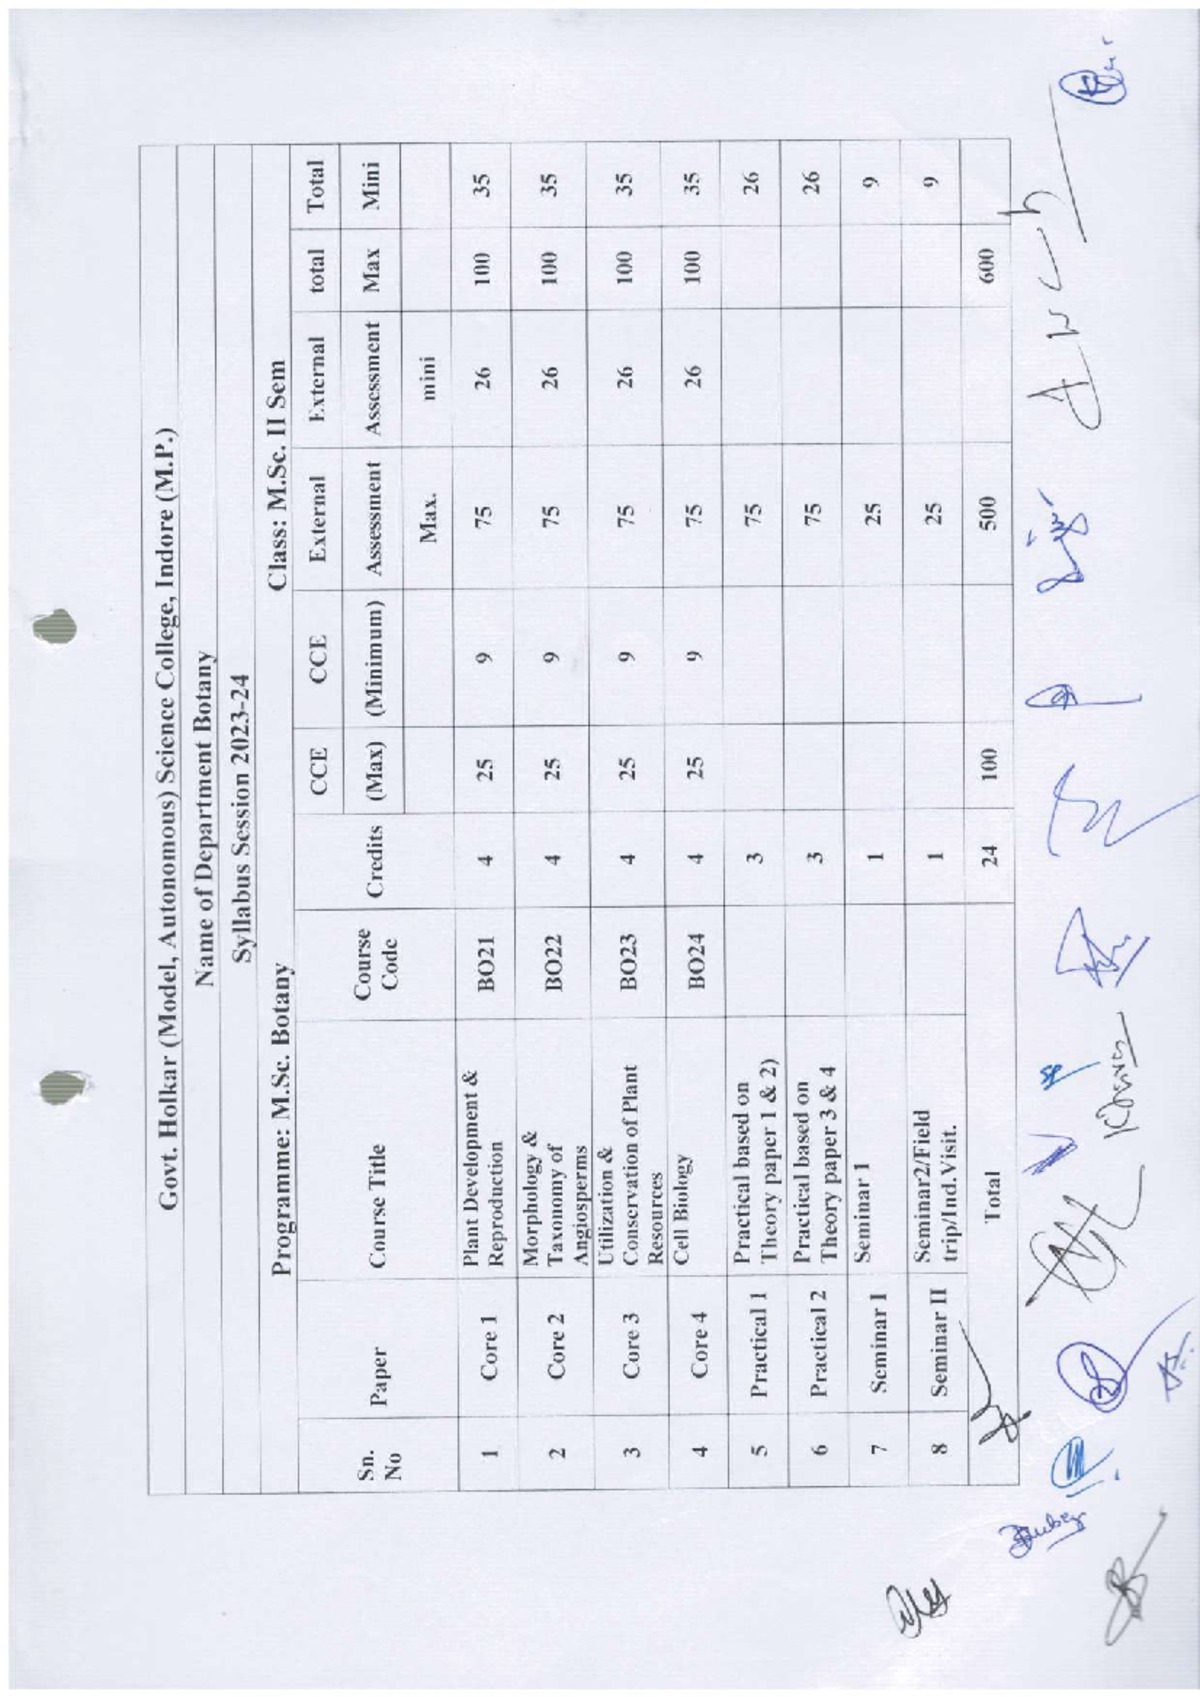 Govt. Holkar (Model, Autonomous) Science College, Indore (M.P.)
Name of Department Botany
Syllabus Session 2023-24
Programme: M.Sc. Botany Class: M.Sc. II Sem
Sn. No Paper Course Title Course Code Credits CCE (Max) CCE (Minimum) External Assessment Max. External Assessment mini total Max Total Mini
1 Core 1 Plant Development & Reproduction BO21 4 25 9 75 26 100 35
2 Core 2 Morphology & Taxonomy of Angiosperms BO22 4 25 9 75 26 100 35
3 Core 3 Utilization & Conservation of Plant Resources BO23 4 25 9 75 26 100 35
4 Core 4 Cell Biology BO24 4 25 9 75 26 100 35
5 Practical 1 Practical based on Theory paper 1 & 2) 3 75 26
6 Practical 2 Practical based on Theory paper 3 & 4 3 75 26
7 Seminar I Seminar 1 1 25 9
8 Seminar II Seminar2/Field trip/Ind.Visit. 1 25 9
Total 24 100 500 600